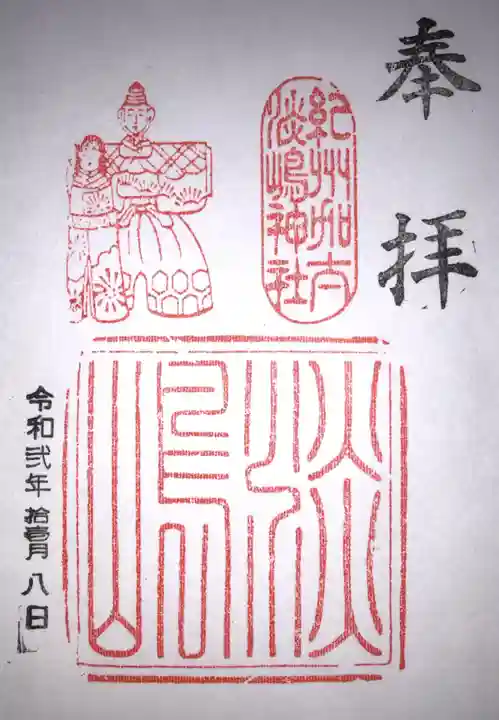 奉拝
紀州加太
淡嶋神社
令和弐年拾壹月八日